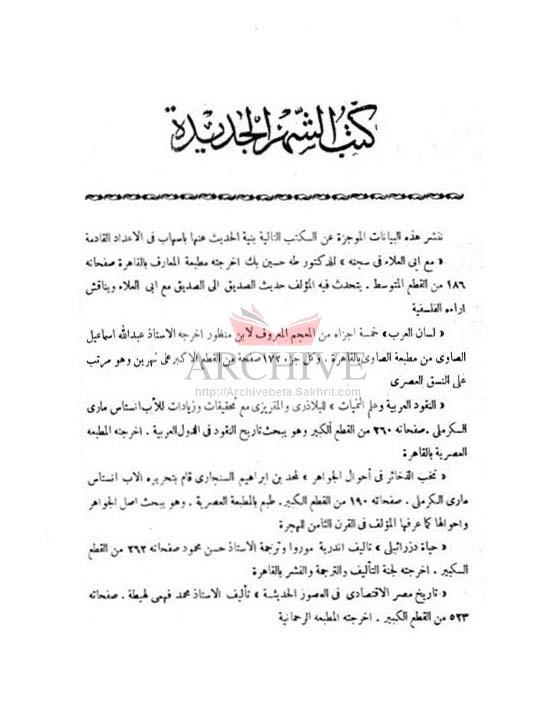 كتب الشهر الجديدة
ننشر هذه البيانات الموجزة عن السكتب التالية بنية الحديث عنها باسهاب فى الاعداد القادمة
« مع ابى العلاء فى سجنه » للدكتور طه حسين بك اخرجته مطبعة المعارف بالقاهرة صفحاته
١٨٦ من القطع المتوسط . يتحدث فيه المؤلف حديث الصديق الى الصديق مع ابى العلاء ويناقش
اراءه الفلسفية
« لسان العرب » خمسة اجزاء من المعجم المعروف لابن منظور اخرجه الاستاذ عبدالله اسماعيل
الصاوى من مطبعة الصاوى بالقاهرة . وكل جزء ١٧٢ صفحة من القطع الاكبر على نهرين وهو مرتب
على النسق العصرى
ARCHIVE
http://Archivebeta.Sakhrit.com
« النقود العربية وعلم النميات » للبلاذرى والمقريزى مع تحقيقات وزيادات للأب انستاس مارى
السكرملى . صفحاته ٢٦٠ من القطع الكبير وهو يبحث تاريخ النقود فى الدول العربية . اخرجته المطبعه
العصرية بالقاهرة
« نخب الذخائر فى أحوال الجواهر » لمحمد بن ابراهيم السنجارى قام بتحريره الاب انستاس
مارى الكرملى . صفحاته ١٩٠ من القطع الكبير . طبع بالمطبعة العصرية . وهو يبحث اصل الجواهر
واحوالها كما عرفها المؤلف فى القرن الثامن للهجرة
« حياة دزرائيلى » تاليف اندرية موروا وترجمة الاستاذ حسن محمود صفحاته ٢٦٢ من القطع
السكبير . اخرجته لجنة التأليف والترجمة والنشر بالقاهرة
« تاريخ مصر الاقتصادى فى العصور الحديثة » تأليف الاستاذ محمد فهمى لهيطة . صفحاته
٥٢٣ من القطع الكبير . اخرجته المطبعه الرحمانية